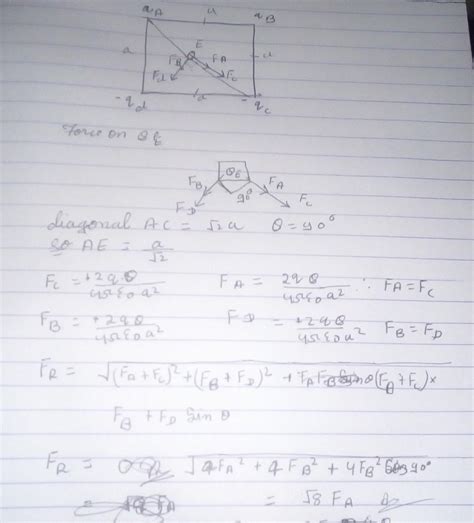 q A a q B
a E a
F_B Q F_A
F_d F_C
-q d a -q c
Force on Q
F_B Q_E F_A
90°
F_D F_C
diagonal AC = √2 a θ = 90°
so AE = a/√2
F_C = +2qQ/4πε₀a² F_A = 2qQ/4πε₀a² ∴ F_A = F_C
F_B = +2qQ/4πε₀a² F_D = +2qQ/4πε₀a² F_B = F_D
F_R = √(F_A + F_C)² + (F_B + F_D)² + (F_B + F_C) ×
F_B + F_D Sin θ
F_R = √4F_A² + 4F_B² + 4F_B² Cos 90°
= = √8 F_A